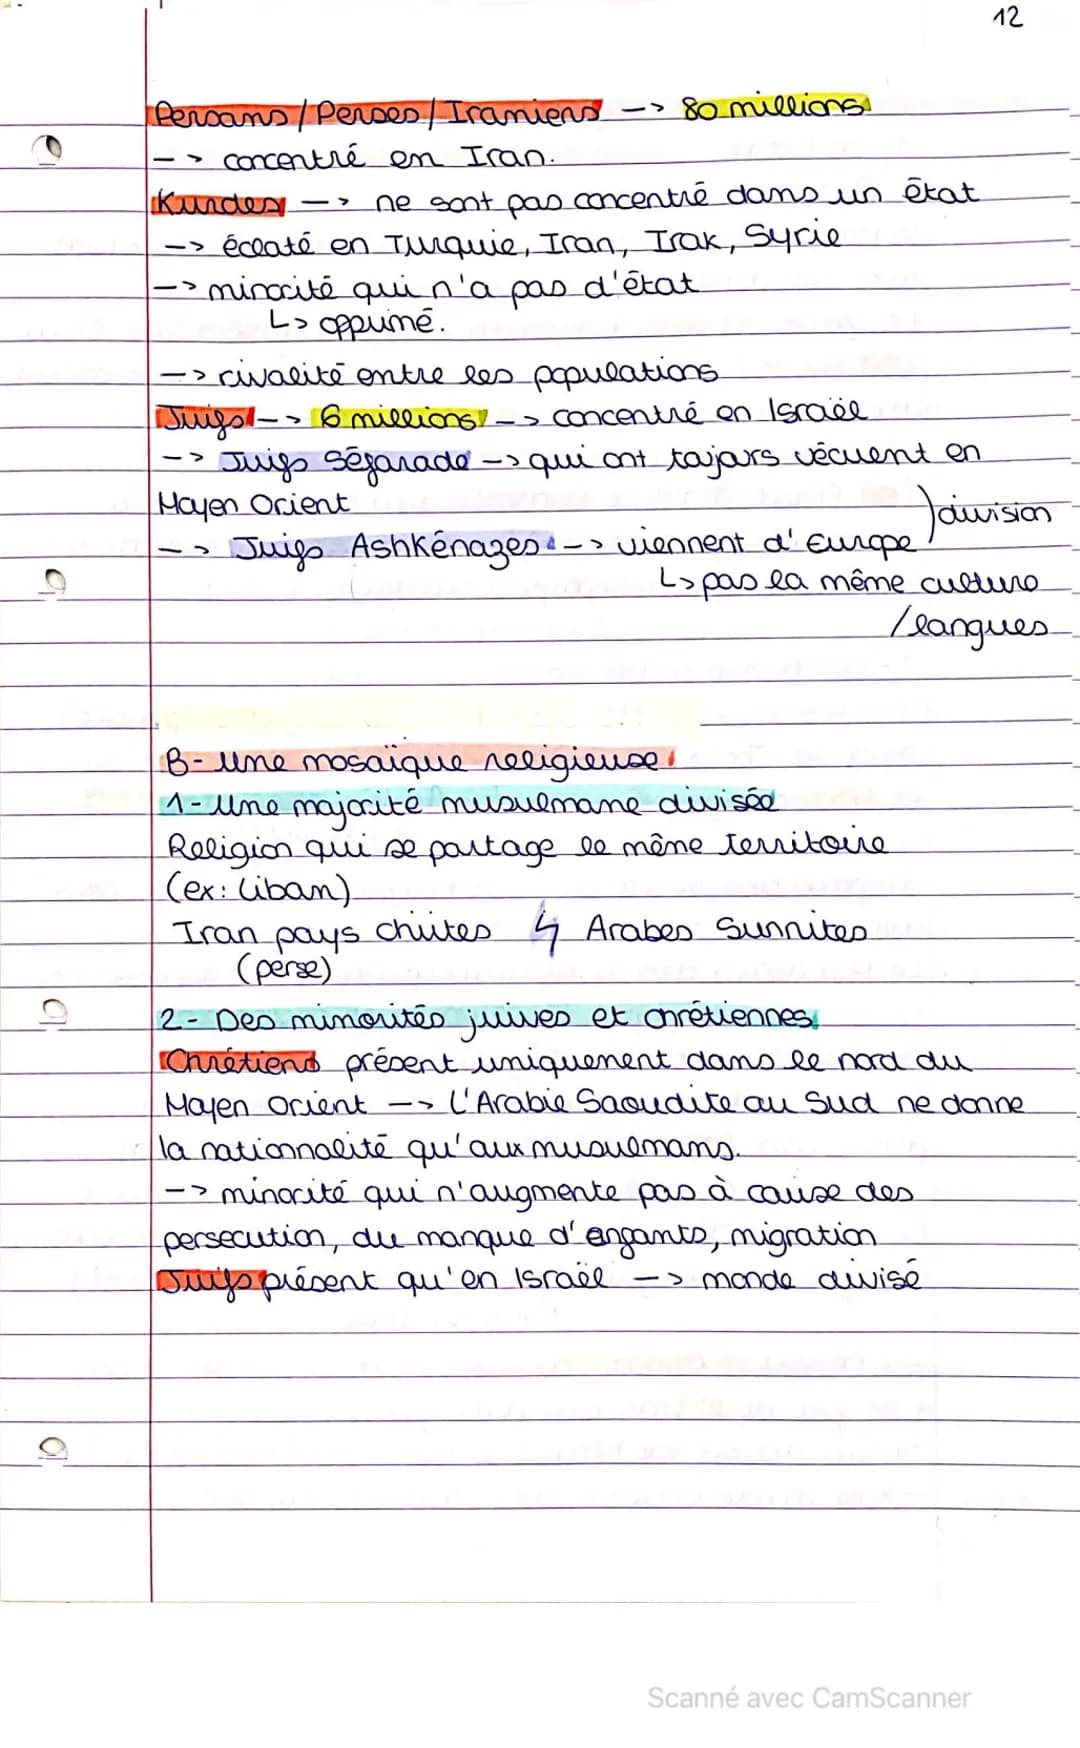 12
Persans/Perses/Iraniens --> 80 millions
--> concentré en Iran.
Kurdes --> ne sont pas concentré dans un état
--> éclaté en Turquie, Iran, Irak, Syrie
--> minorité qui n'a pas d'état
↳> opprimé.
--> rivalité entre les populations
Juifs --> 6 millions --> concentré en Israël
--> Juifs Séfarade --> qui ont tojours vécuent en
Moyen Orient
)division
--> Juifs Ashkénazes --> viennent d'Europe
↳> pas la même culture
/langues
B- Une mosaïque religieuse
1- Une majorité musulmane divisée
Religion qui se partage le même territoire
(ex: Liban)
Iran pays chiites ↯ Arabes Sunnites
(perse)
2- Des minorités juives et chrétiennes
Chrétiens présent uniquement dans le nord du
Moyen Orient --> L'Arabie Saoudite au Sud ne donne
la nationnalité qu'aux musulmans.
--> minorité qui n'augmente pas à cause des
persecution, du manque d'enfants, migration
Juifs présent qu'en Israël --> monde divisé
Scanné avec CamScanner